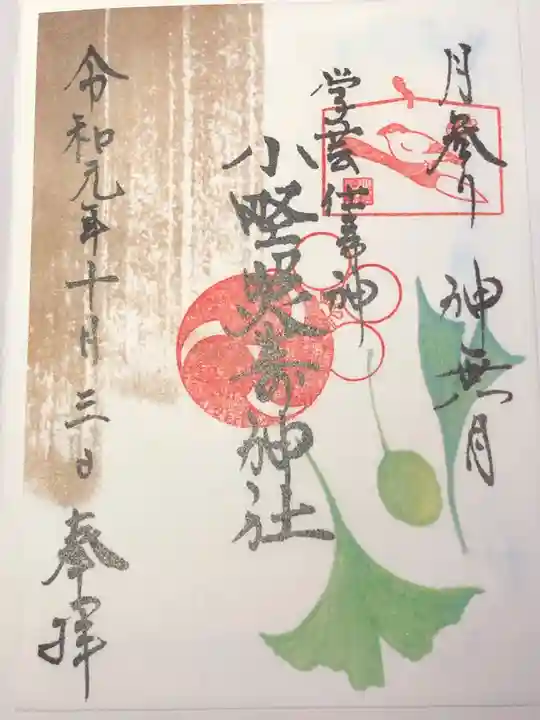 月参り 神無月
学芸仕寿神
小野照崎神社
令和元年十月三日
奉拝